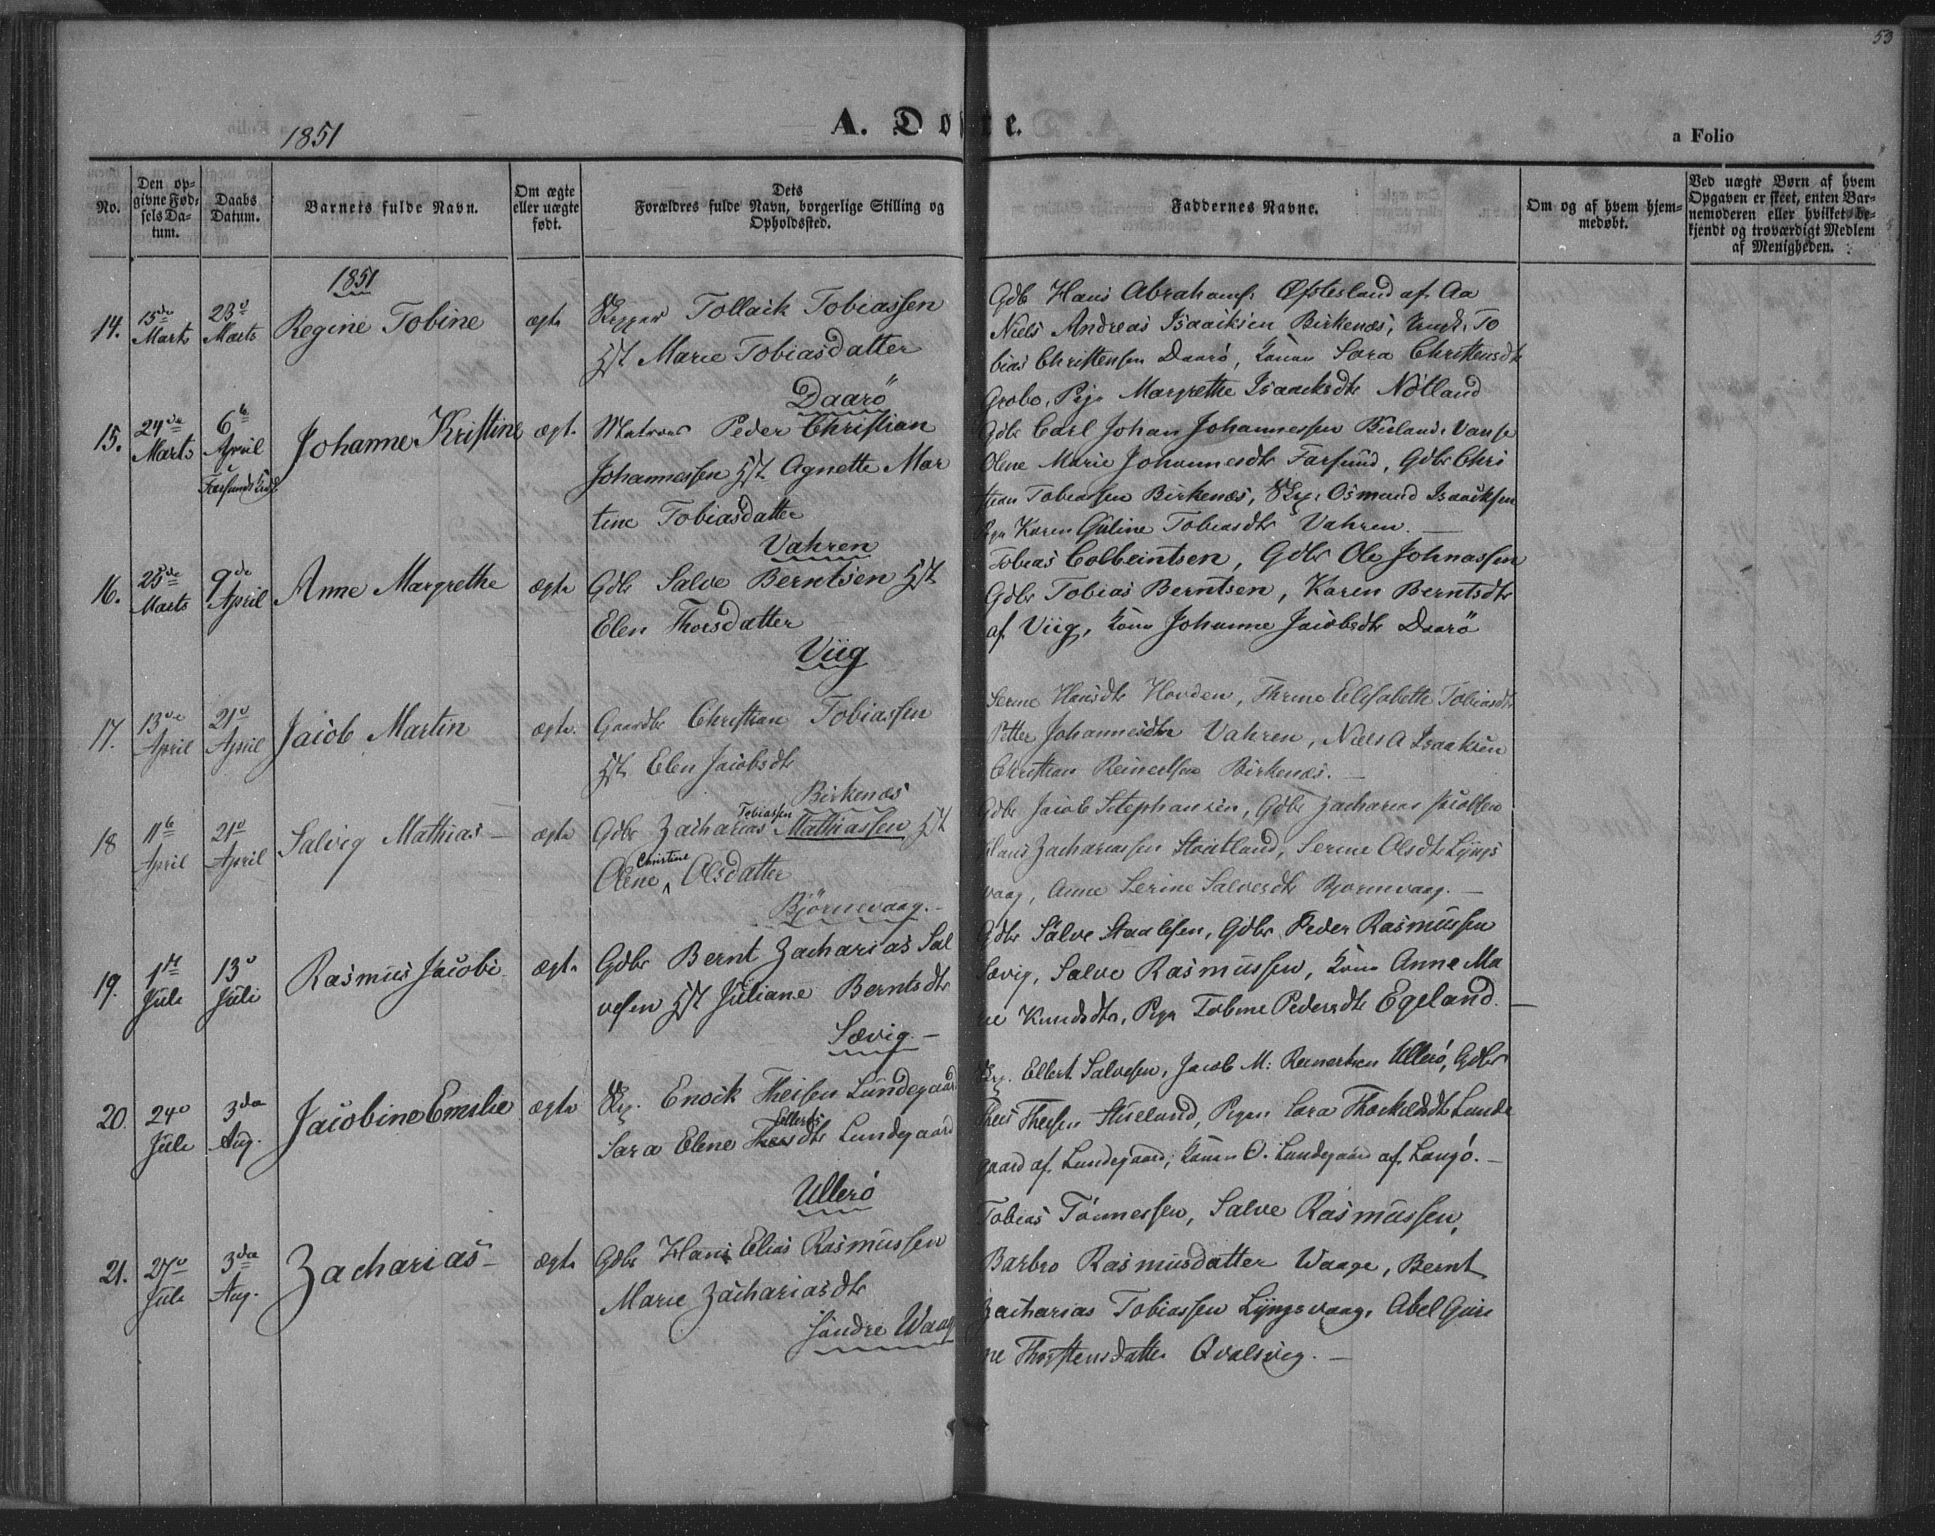 53
1851
A. Do te.
a Folio
No.
Den opgivne Fødsels Datum.
Daabs Datum.
Barnets fulde Navn.
Om ægte eller uægte født.
Dets Forældres fulde Navn, borgerlige Stilling og Opholdssted.
Faddernes Navne.
Om og af hvem hjemmedøbt.
Ved uægte Børn af hvem Opgaven er skeet, enten Barnemoderen eller hvilket bekjendt og troværdigt Medlem af Menigheden.
1851
14. 15de Marts 23d Marts Regine Tobine ægte
Skipper Tollack Tobiassen
Hst Marie Tobiasdatter
Daarö
Gdbr Hans Abrahams. Øftesland af Aa
Niels Andreas Isaaksen Birkenæs, Ungk. To
bias Christensen Daarö, Konen Sara Christensdtr
Grobo, Pige Margrethe Isaacksdtr Nötland
15. 24de Marts 6te April Farsunds Kirke Johanne Kristine ægte
Matros Peder Christian
Johannessen Hst Agnette Mar
tine Tobiasdatter
Vahren
Gdbr Carl Johan Johannessen Vanse
Olene Marie Johannesdtr Farsund, Gdbr Chri
stian Tobiassen Birkenæs, Skp. Osmund Isaacksen
Karen Guline Tobiasdtr Vahren.
16. 25de Marts 9de April Anne Margrethe ægte
Gdbr Salve Berntsen Hst
Elen Thorsdatter
Viig
Tobias Colbeintsen, Gdbr Ole Johnassen
Gdbr Tobias Berntsen, Karen Berntsdtr
af Viig, Kone Johanne Jacobsdtr Daarö
17. 13de April 21d April Jacob Martin ægte.
Gaardbr Christian Tobiassen
Hst Elen Jacobsdtr
Birkenæs
Serine Hansdtr Hovden, Thrine Elisabeth Tobiasdtr
Petter Johannesdtr Vahren, Niels A Isaaksen
Christian Reinertsen Birkenæs.
18 11te April 21d April Salvig Mathias ægte
Gdbr Zacharias Tobiassen Mathiassen Hst
Olene Christine Olsdatter
Björnevaag.
Gdbr Jacob Stephansen, Gdbr Zacharias Jacobsen
Hans Zachariassen Stoutland, Serine Olsdtr Lÿngs
vaag, Anne Serine Salvesdtr Bjornevaag.
19. 1st Juli 13d Juli Rasmus Jacobi ægte
Gdbr Bernt Zacharias Sal
vesen Hst Juliane Berntsdtr
Sævig.
Gdbr Salve Staalesen, Gdbr Peder Rasmussen
Sævig, Salve Rasmussen, Kone Anne Ma
rie Knudsdtr, Pige Tobine Pedersdtr Egeland.
20. 24d Juli 3die Aug. Jacobine Emelie ægte
Skp. Enock Theisen Lundegaard
Sara Elene Ellertsdtr Lundegaard
Ullerö
Skp. Ellert Salvesen, Jacob M: Reinertsen Ullerö, Gdbr
Theis Theisen Stuseland, Pigen Sara Thorkildsdtr Lunde
gaard af Lundegaard, Konen O. Lundegaard af Langö.
21. 27d Juli 3die Aug. Zacharias ægte
Gdbr Hans Elias Rasmussen
Marie Zachariasdtr
Söndre Waage
Tobias Tönnessen, Salve Rasmussen,
Barbro Rasmusdatter Waage, Bernt
Zacharias Tobiassen Lÿngsvaag, Abel Guri
ne Thorstensdatter Qvalsvig.